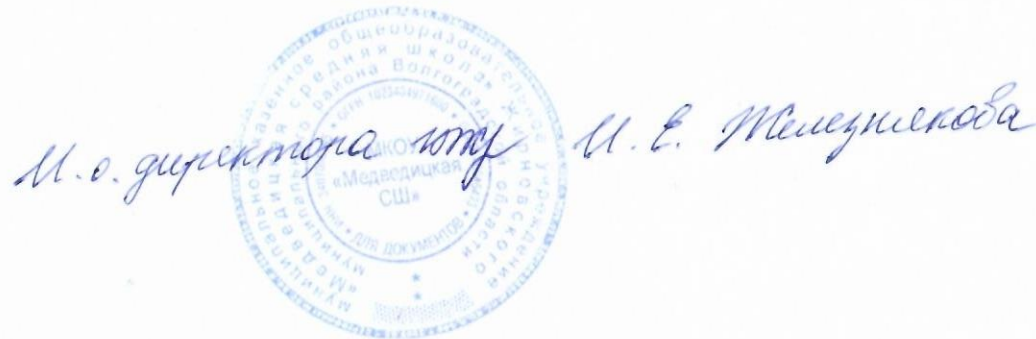 И.о. директора И. Е. Железнякова
муниципальное казенное общеобразовательное учреждение
«Медведицкая средняя школа» Жирновского
муниципального района Волгоградской области
ОГРН
ИНН
ДЛЯ ДОКУМЕНТОВ
МКОУ
«Медведицкая
СШ»